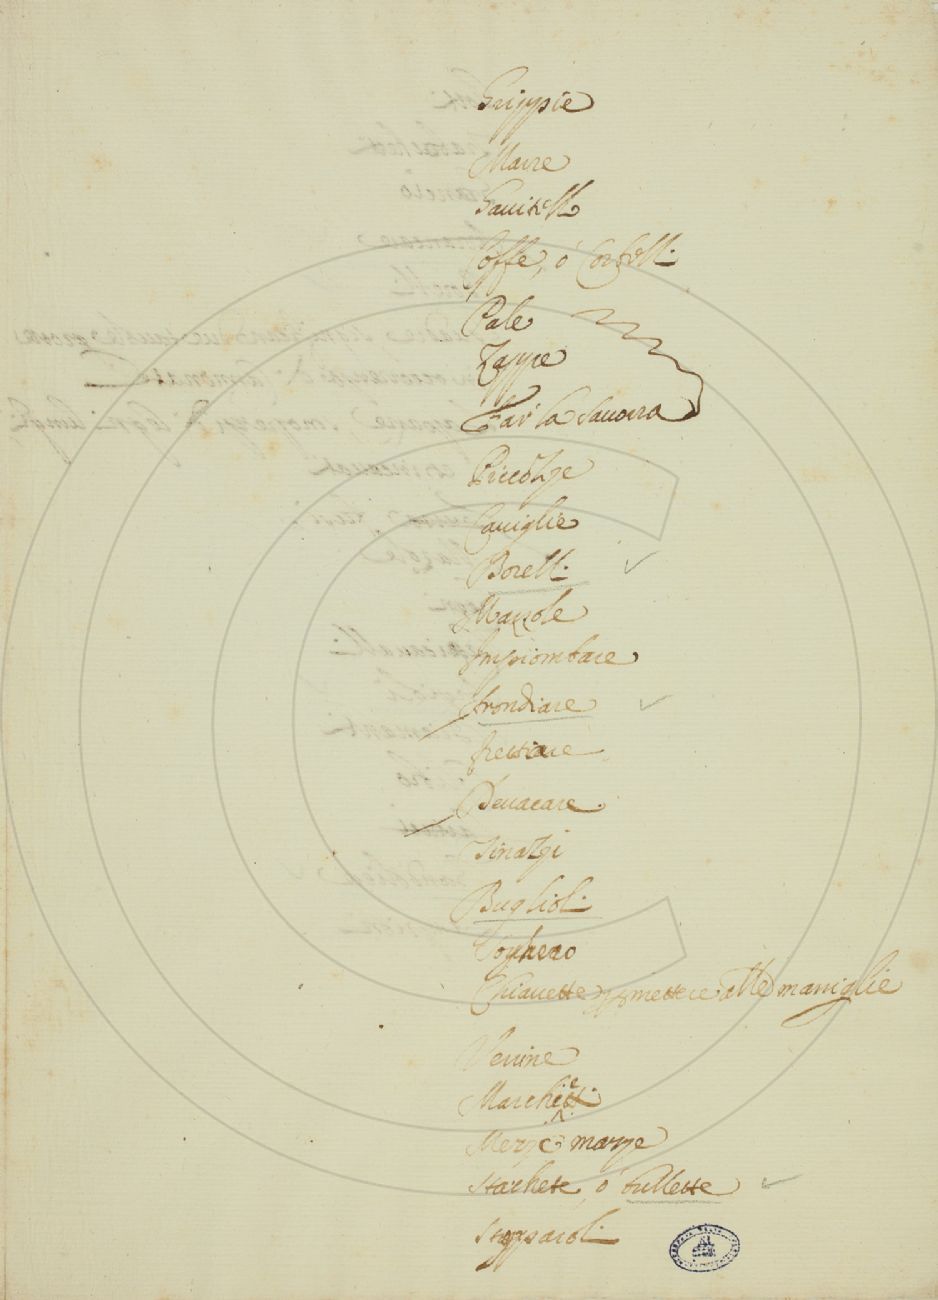 Grippie
Marre
Gavitelli
Coffe, ò Corbelli
Pale
Zappe
Far la Savorra
Piccozze
Caviglie
Borelli
Mazzole
Impiombare
frondiare
frettare
Devacare
Sinalzi
Buglioli
Chiavette p mettere alle maniglie
Verine
Marchetti
Merze marze
Stachete, ò bullette
Stopparoli